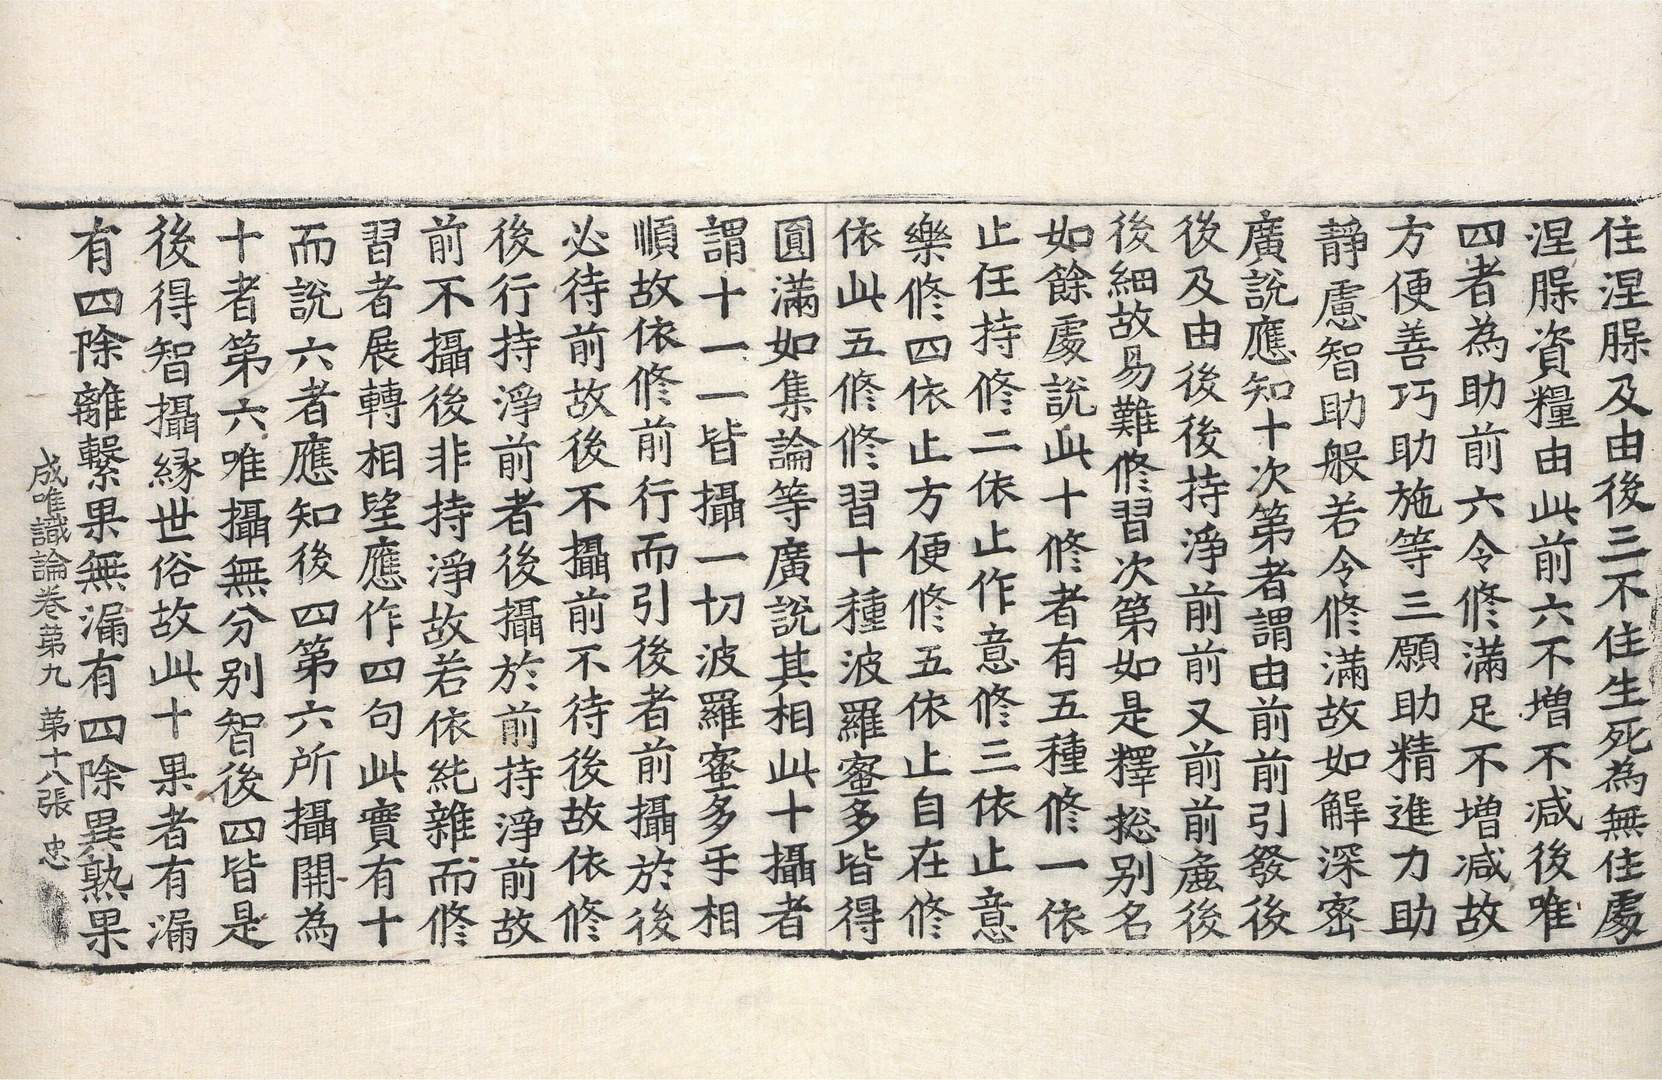 住涅脲及由後三不住生死為無住處
涅脲資糧由此前六不增不減後唯
四者為助前六令修滿足不增減故
方便善巧助施等三願助精進力助
靜慮智助般若令修滿故如解深密
廣說應知十次第者謂由前前引發後
後及由後後持淨前前又前前麁後
後細故易難修習次第如是釋揔別名
如餘處說此十修者有五種修一依
止任持修二依止作意修三依止意
樂修四依止方便修五依止自在修
依此五修修習十種波羅蜜多皆得
圓滿如集論等廣說其相此十攝者
謂十一一皆攝一切波羅蜜多互相
順故依修前行而引後者前攝於後
必待前故後不攝前不待後故依修
後行持淨前者後攝於前持淨前故
前不攝後非持淨故若依純雜而修
習者展轉相望應作四句此實有十
而說六者應知後四第六所攝開為
十者第六唯攝無分別智後四皆是
後得智攝緣世俗故此十果者有漏
有四除離繫果無漏有四除異熟果
成唯識論卷第九 第十八張 忠